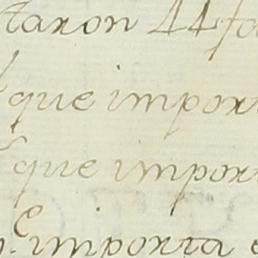 taron 44
que impor
que impor
importa